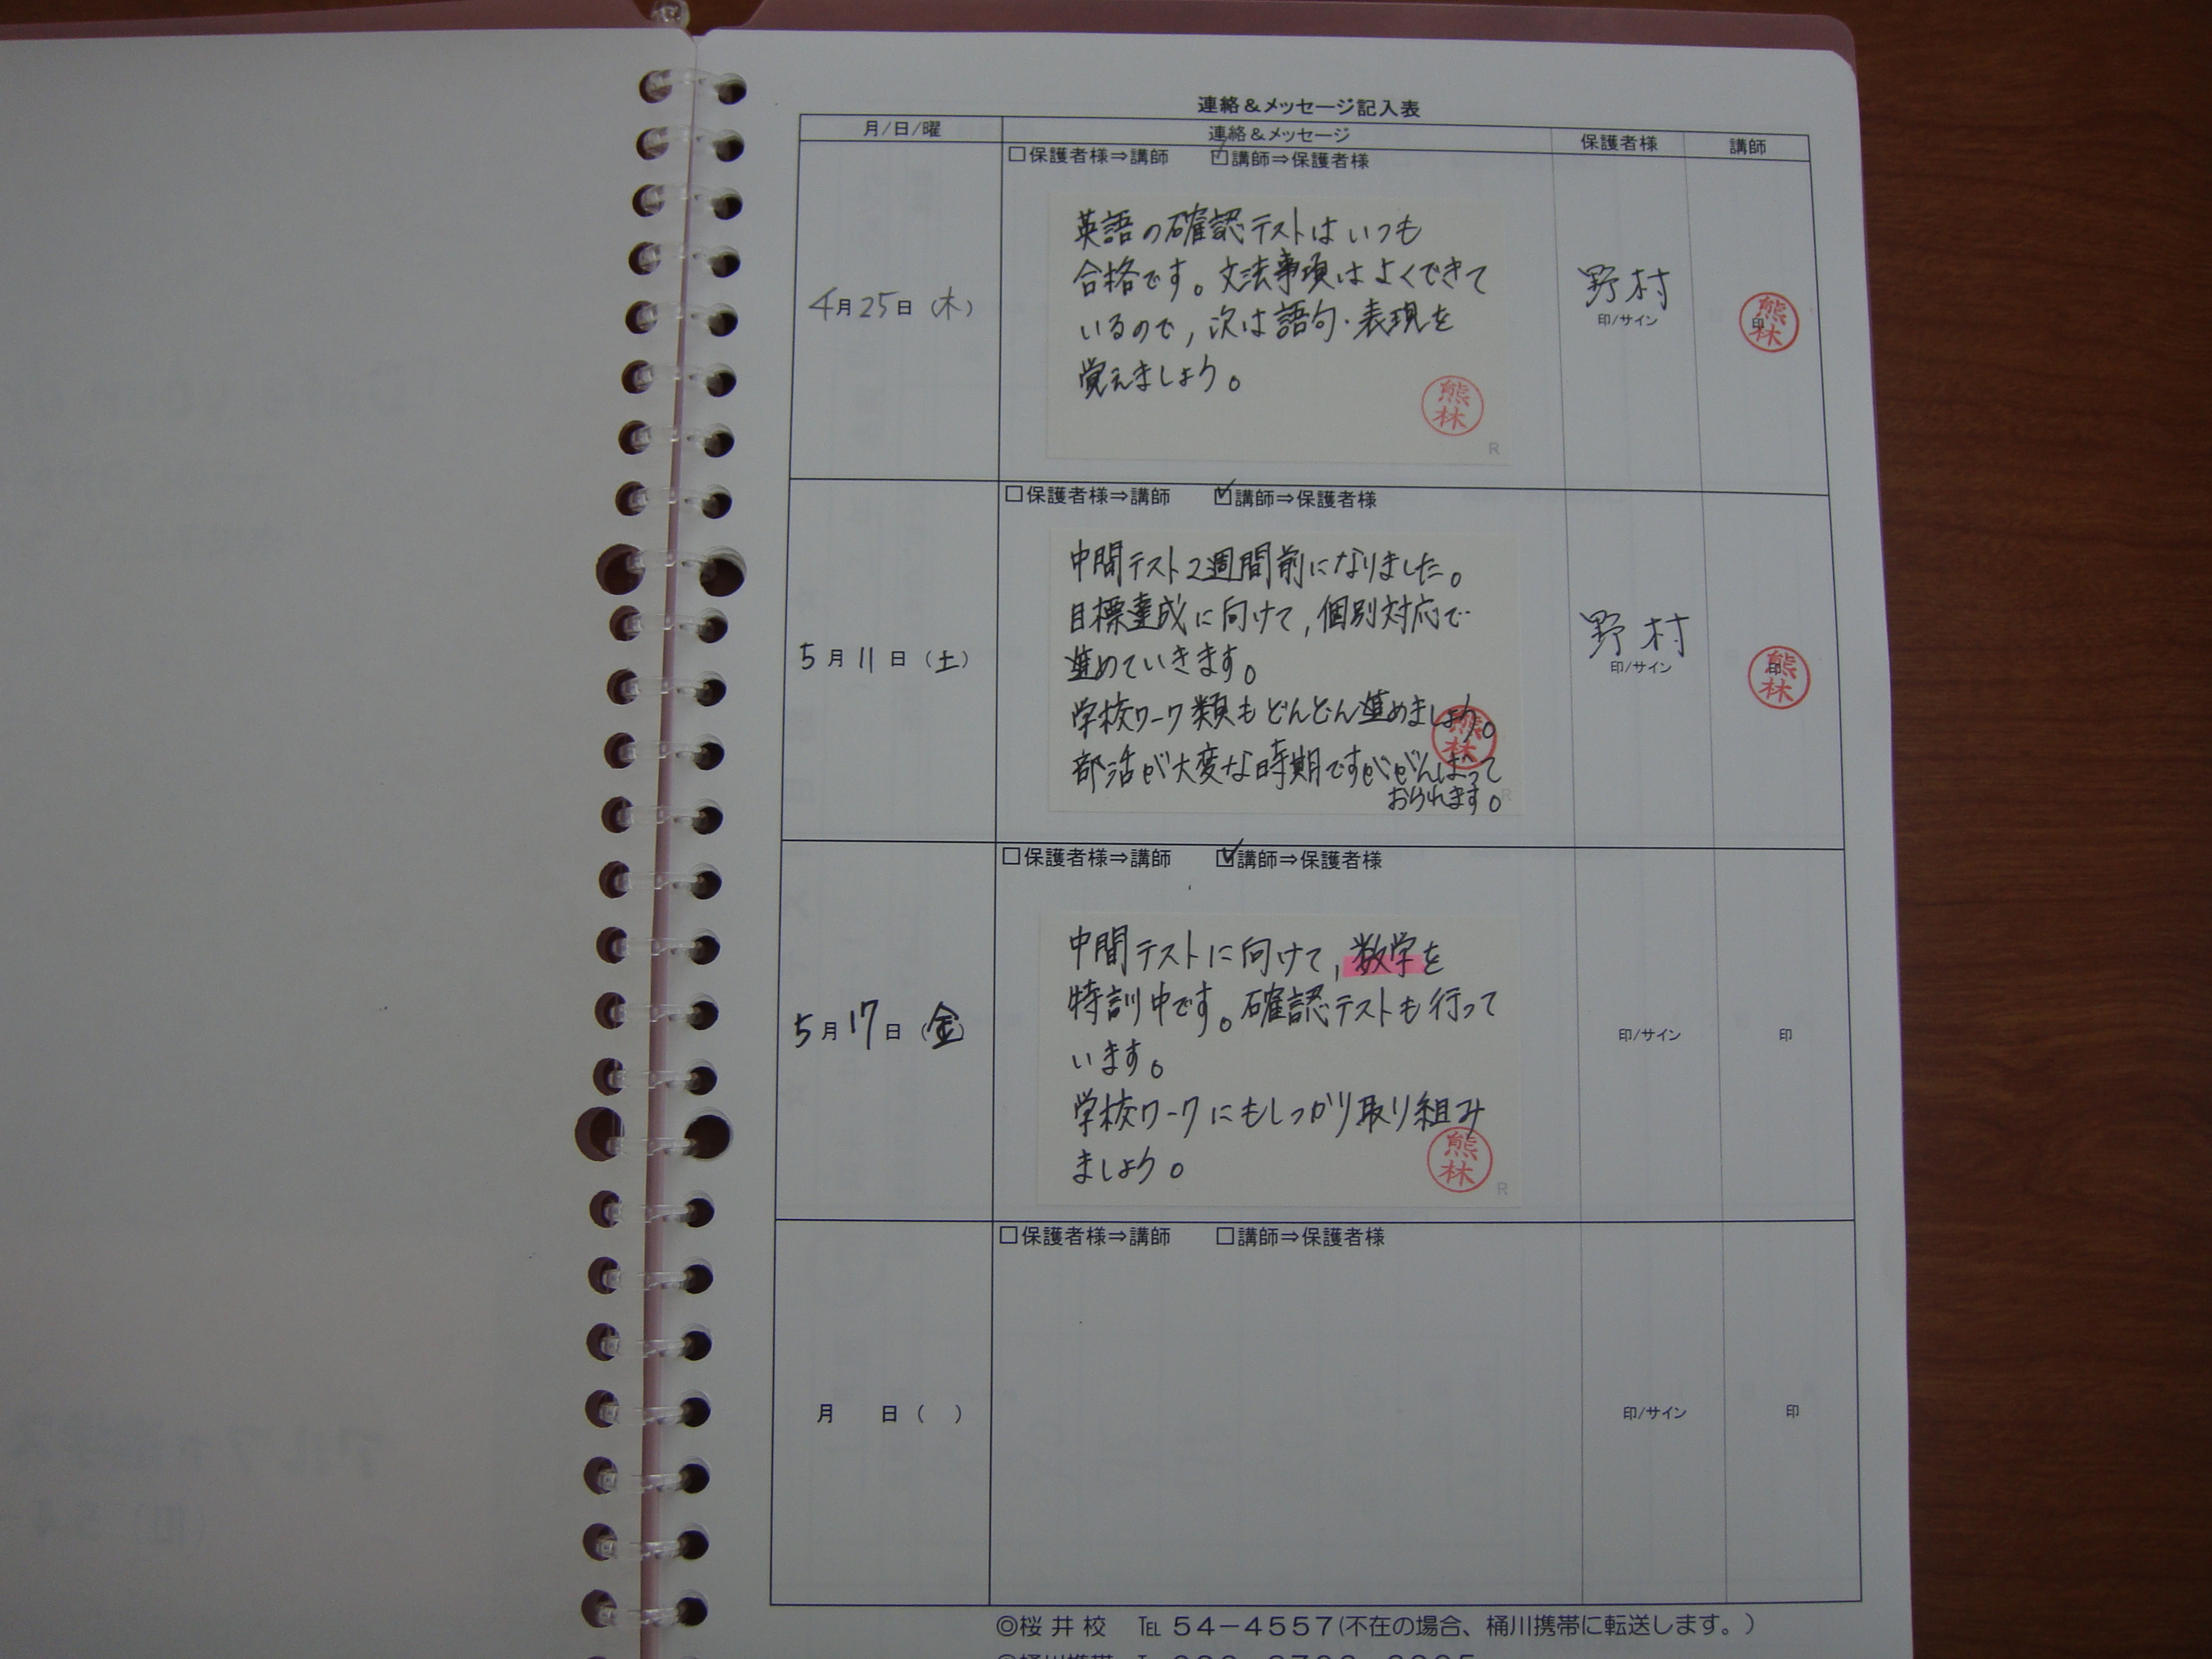 連絡＆メッセージ記入表
月/日/曜
連絡＆メッセージ
保護者様
講師
□保護者様⇒講師 ☑講師⇒保護者様
4月25日（木）
英語の確認テストはいつも
合格です。文法事項はよくできて
いるので,次は語句・表現を
覚えましょう。
熊林
R
野村
印/サイン
印
熊林
□保護者様⇒講師 ☑講師⇒保護者様
5月11日（土）
中間テスト2週間前になりました。
目標達成に向けて,個別対応で
進めていきます。
学校ワーク類もどんどん進めましょう。
部活が大変な時期ですががんばって
おられます。
熊林
R
野村
印/サイン
印
熊林
□保護者様⇒講師 ☑講師⇒保護者様
5月17日（金）
中間テストに向けて,数学を
特訓中です。確認テストも行って
います。
学校ワークにもしっかり取り組み
ましょう。
熊林
R
印/サイン
印
□保護者様⇒講師 □講師⇒保護者様
月 日（ ）
印/サイン
印
◎桜井校 ℡54－4557(不在の場合、桶川携帯に転送します。）